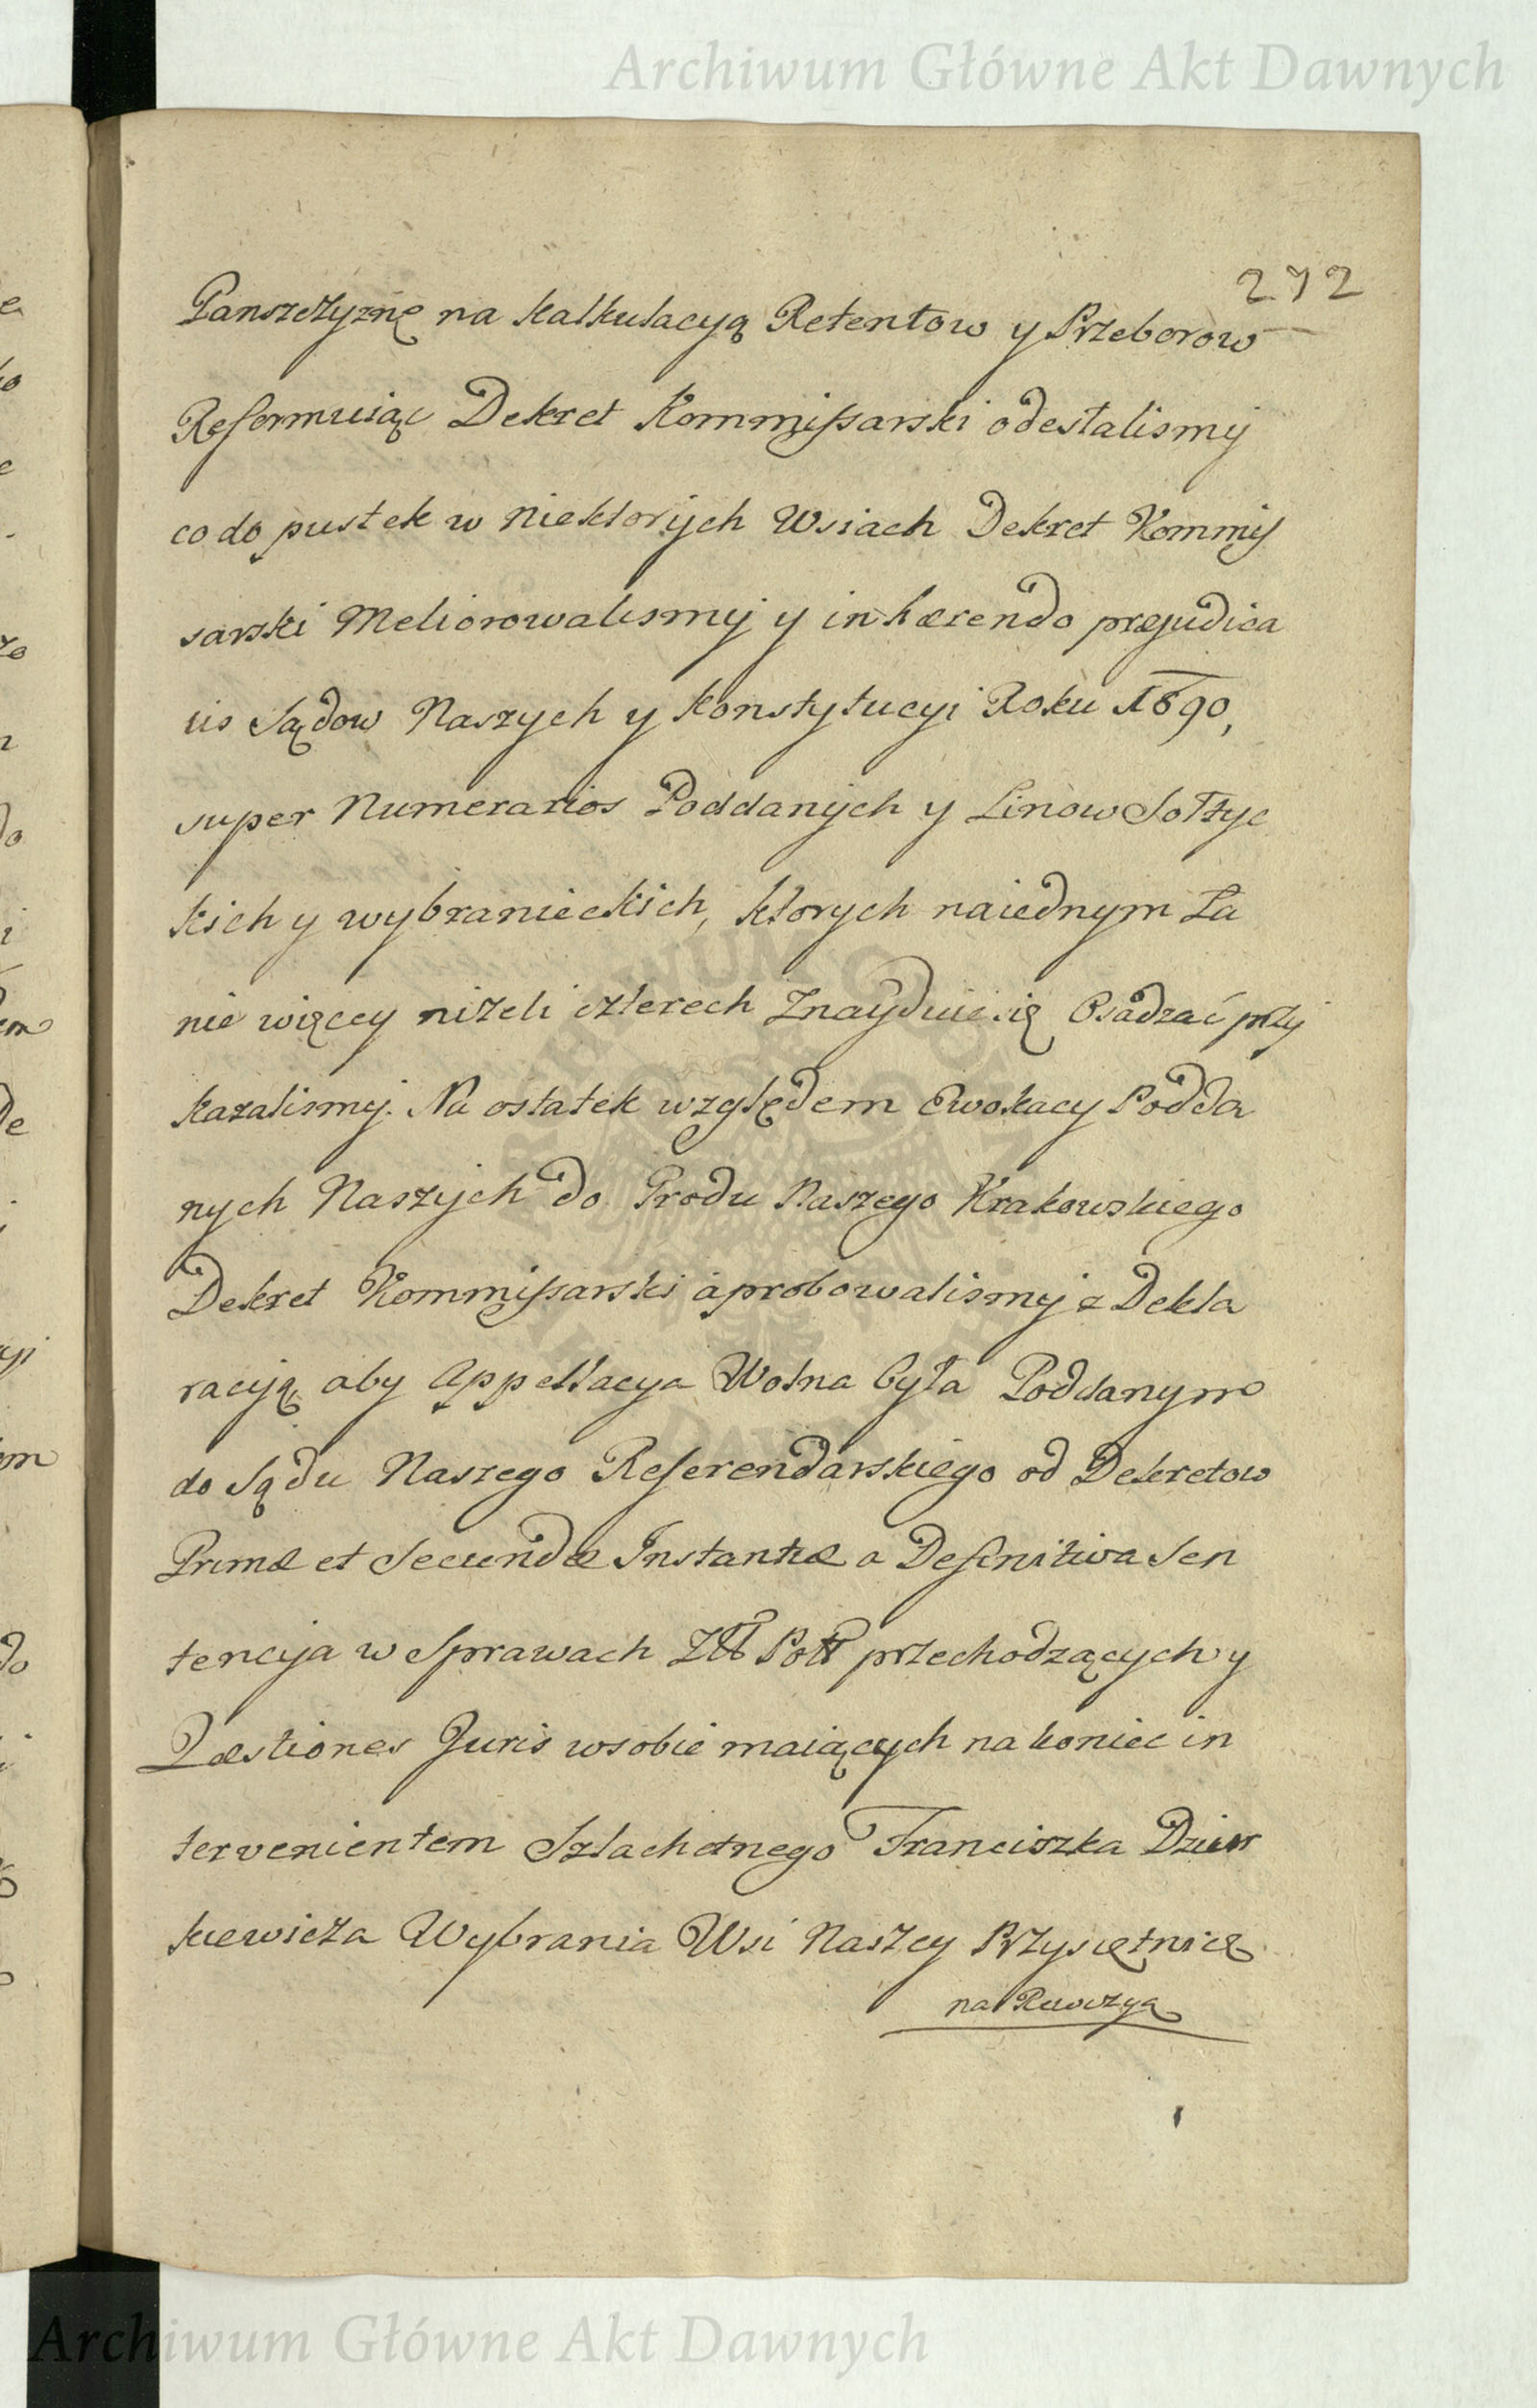 Archiwum Główne Akt Dawnych
272
Panszczyznę na kalkulacyą Retentow y Przeborow
Reformuiąc Dekret Kommissarski odesłalismy
co do pustek w niektorych Wsiach Dekret Kommis
sarski Meliorowalismy y inhærendo præjudica
tis Sądow Naszych y Konstytucyi Roku 1690,
super Numerarios Poddanych y Synow Sołtyc
kich y wybranieckich, ktorych na iednym Ła
nie więcey niżeli czterech Znayduie się Osadzać przy
kazalismy. Na ostatek względem Ewokacy Podda
nych Naszych do Grodu Naszego Krakowskiego
Dekret Kommissarski aprobowalismy z Dekla
racyją aby Appellacya Wolna była Poddanym
do Sądu Naszego Referendarskiego od Dekretow
Primæ et Secundæ Instantiæ a Definitiva Sen
tencyja w Sprawach Złł Poll przechodzących y
Qæstiones Juris w sobie maiących na koniec in
tervenientem Szlachetnego Franciszka Dzier
kiewicza Wybrania Wsi Naszey Przysietnicę
na
Archiwum Główne Akt Dawnych